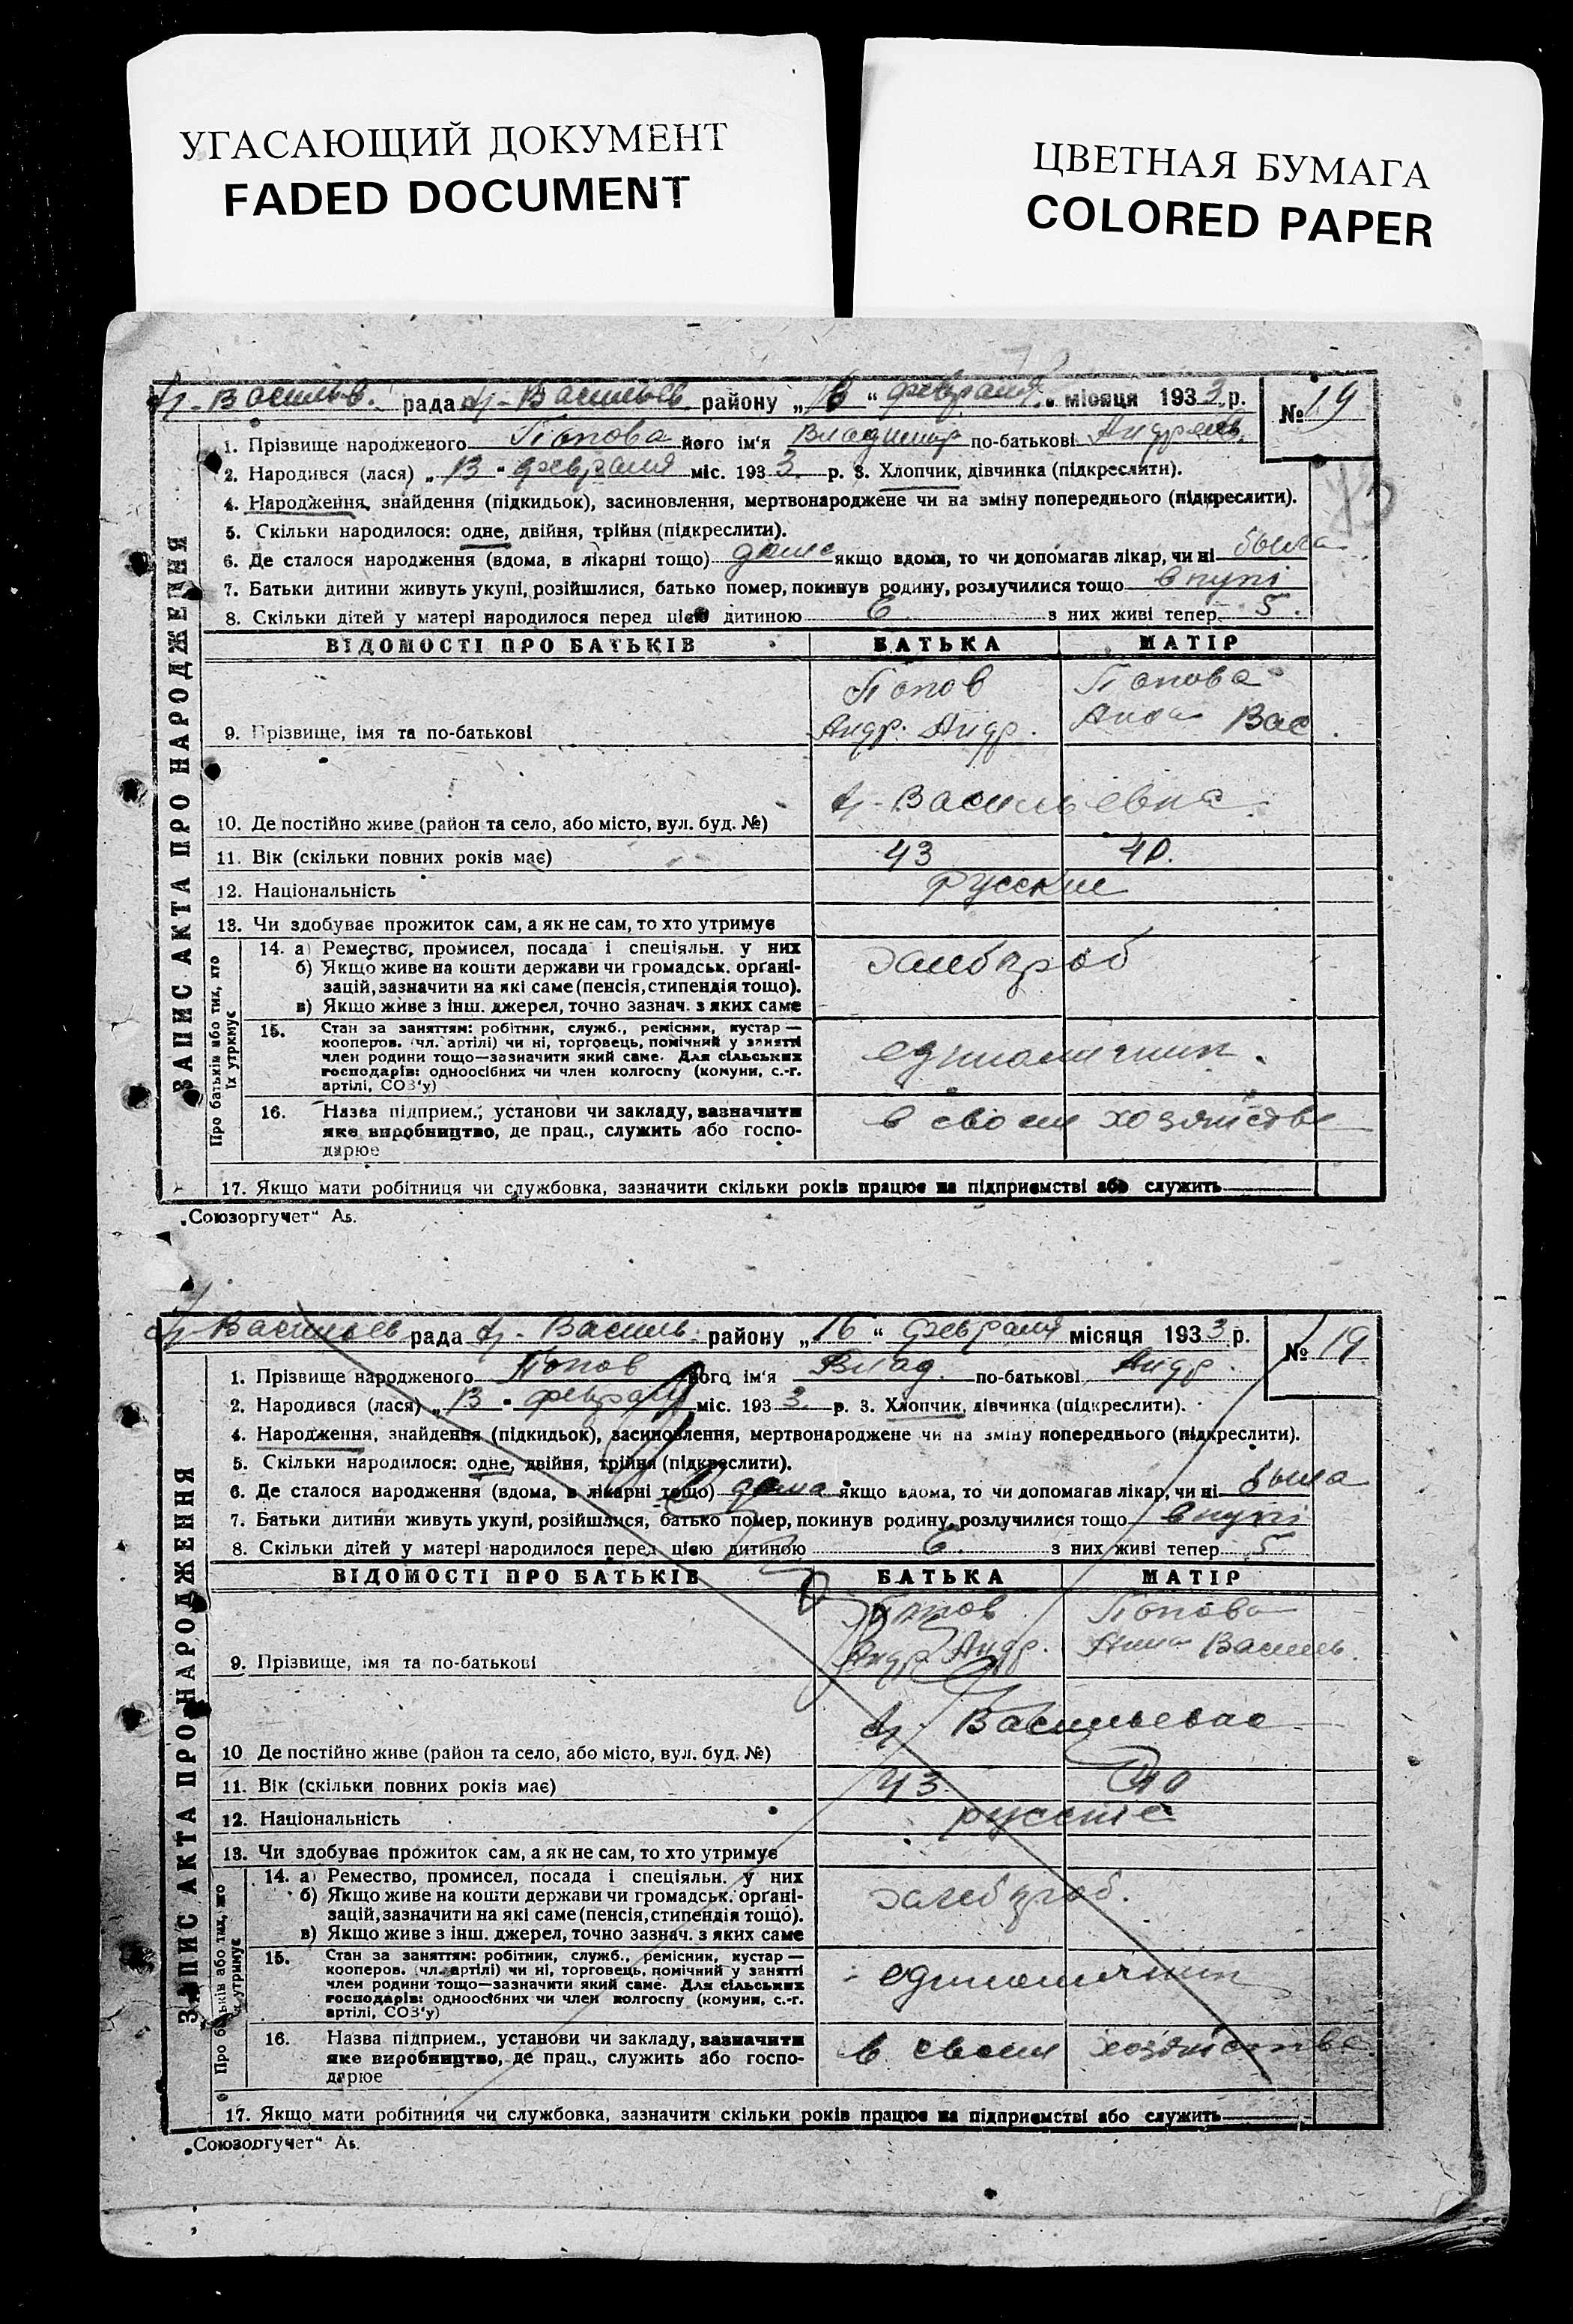 УГАСАЮЩИЙ ДОКУМЕНТ
FADED DOCUMENT
ЦВЕТНАЯ БУМАГА
COLORED PAPER
ЗАПИС АКТА ПРО НАРОДЖЕННЯ
рада района району „16“ февраля місяця 1933 р. № 19
1. Прізвище народженого Попова його ім'я Владимир по-батькові Андреев.
2. Народився (лася) „13" февраля міс. 1933. р. 3. Хлопчик, дівчинка (підкреслити).
4. Народження, знайдення (підкидьок), засиновлення, мертвонароджене чи на зміну попереднього (підкреслити).
5. Скільки народилося: одне, двійня, трійня (підкреслити).
6. Де сталося народження (вдома, в лікарні тощо) дома якщо вдома, то чи допомагав лікар, чи ні была
7. Батьки дитини живуть укупі, розійшлися, батько помер, покинув родину, розлучилися тощо вкупі
8. Скільки дітей у матері народилося перед цією дитиною 6 з них живі тепер 5.
ВІДОМОСТІ ПРО БАТЬКІВ БАТЬКА МАТІР
Попов Попова
9. Прізвище, імя та по-батькові Андр. Андр. Анна Вас
10. Де постійно живе (район та село, або місто, вул. буд. №)
11. Вік (скільки повних років має) 43 40.
12. Національність русские
13. Чи здобуває прожиток сам, а як не сам, то хто утримує
Про батьків або тих, хто їх утримує
14. а) Ремество, промисел, посада і спеціяльн. у них хлебороб
б) Якщо живе на кошти держави чи громадськ. органі-
зацій, зазначити на які саме (пенсія, стипендія тощо).
в) Якщо живе з інш. джерел, точно зазнач. з яких саме
15. Стан за заняттям: робітник, служб., ремісник, кустар —
кооперов. (чл. артілі) чи ні, торговець, помічний у занятті
член родини тощо—зазначити який саме. Для сільських
господарів: одноосібних чи член колгоспу (комуни, с.-г.
артілі, СОЗ'у)
единоличник.
16. Назва підприєм., установи чи закладу, зазначити в своем хозяйстве
яке виробництво, де прац., служить або госпо-
дарює
17. Якщо мати робітниця чи службовка, зазначити скільки років працює на підприємстві або служить
„Союзоргучет“ Ак.
ЗАПИС АКТА ПРО НАРОДЖЕННЯ
рада району „16“ февраля місяця 1933 р. № 19.
1. Прізвище народженого Попов його ім'я Влад. по-батькові Андр.
2. Народився (лася) „13" февраля міс. 1933. р. 3. Хлопчик, дівчинка (підкреслити).
4. Народження, знайдення (підкидьок), засиновлення, мертвонароджене чи на зміну попереднього (підкреслити).
5. Скільки народилося: одне, двійня, трійня (підкреслити).
6. Де сталося народження (вдома, в лікарні тощо) дома якщо вдома, то чи допомагав лікар, чи ні была
7. Батьки дитини живуть укупі, розійшлися, батько помер, покинув родину, розлучилися тощо вкупі
8. Скільки дітей у матері народилося перед цією дитиною 6. з них живі тепер 5
ВІДОМОСТІ ПРО БАТЬКІВ БАТЬКА МАТІР
Попов Попова
9. Прізвище, імя та по-батькові Андр Андр. Анна Василь.
10 Де постійно живе (район та село, або місто, вул. буд. №)
11. Вік (скільки повних років має) 43. 40
12. Національність русские
13. Чи здобуває прожиток сам, а як не сам, то хто утримує
Про батьків або тих, хто їх утримує
14. а) Ремество, промисел, посада і спеціяльн. у них хлебороб.
б) Якщо живе на кошти держави чи громадськ. органі-
зацій, зазначити на які саме (пенсія, стипендія тощо).
в) Якщо живе з інш. джерел, точно зазнач. з яких саме
15. Стан за заняттям: робітник, служб., ремісник, кустар —
кооперов. (чл. артілі) чи ні, торговець, помічний у занятті
член родини тощо—зазначити який саме. Для сільських
господарів: одноосібних чи член колгоспу (комуни, с.-г.
артілі, СОЗ'у)
единоличник
16. Назва підприєм., установи чи закладу, зазначити в своем хозяйстве.
яке виробництво, де прац., служить або госпо-
дарює
17. Якщо мати робітниця чи службовка, зазначити скільки років працює на підприємстві або служить
„Союзоргучет“ Ак.